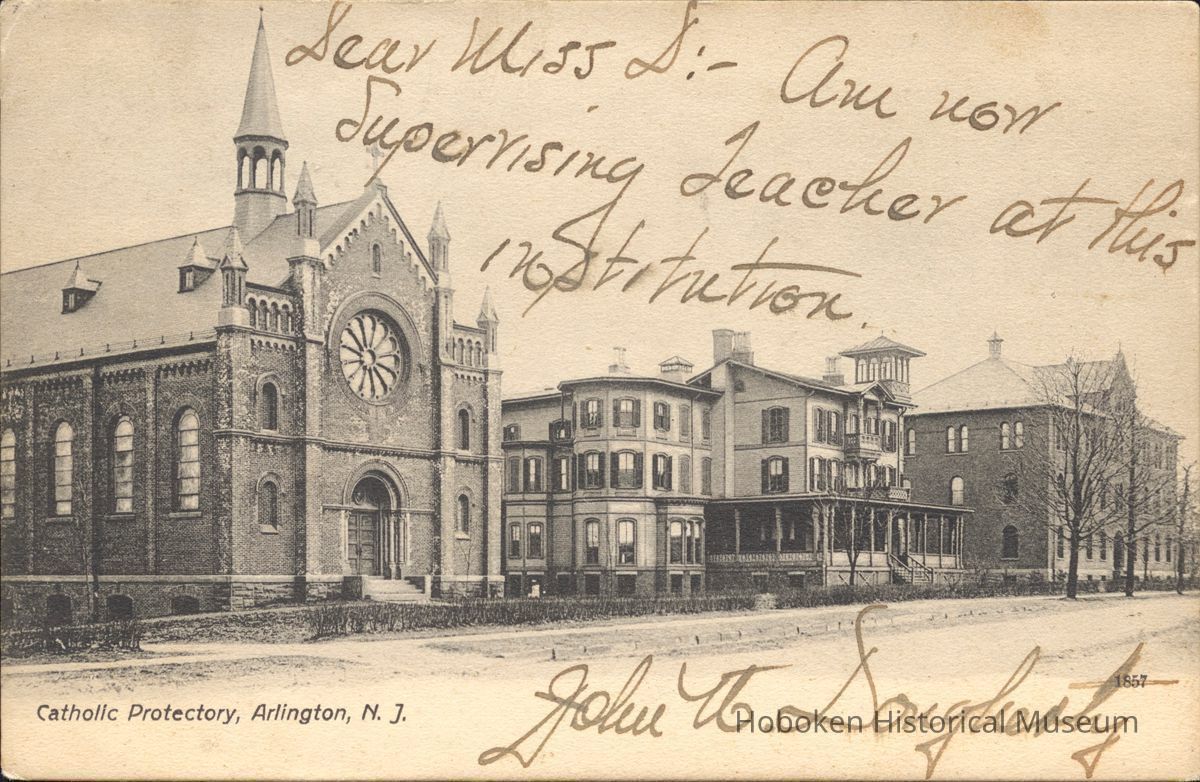 Dear Miss D:- Am now
Supervising Teacher at this
institution.
Catholic Protectory, Arlington, N. J.
1857
John Dougherty
Hoboken Historical Museum